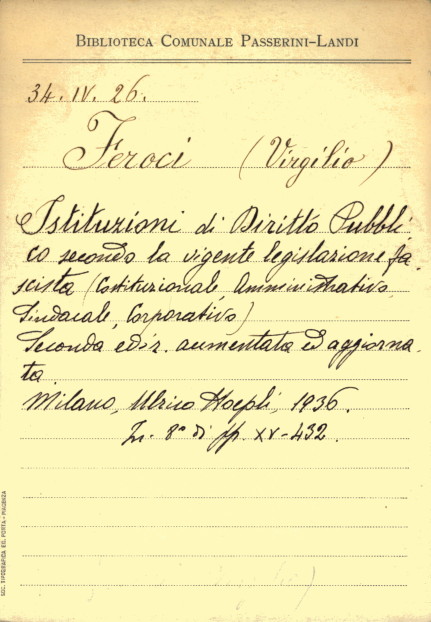 BIBLIOTECA COMUNALE PASSERINI-LANDI
34. IV. 26.
Feroci (Virgilio)
Istituzioni di Diritto Pubbli
co secondo la vigente legislazione fa
scista (Costituzionale Amministrativo,
Sindacale, Corporativo)
Seconda ediz. aumentata ed aggiorna
ta.
Milano, Ulrico Hoepli, 1936.
In. 8° di pp. XV-432.
SOC. TIPOGRAFICA ED. PORTA - PIACENZA